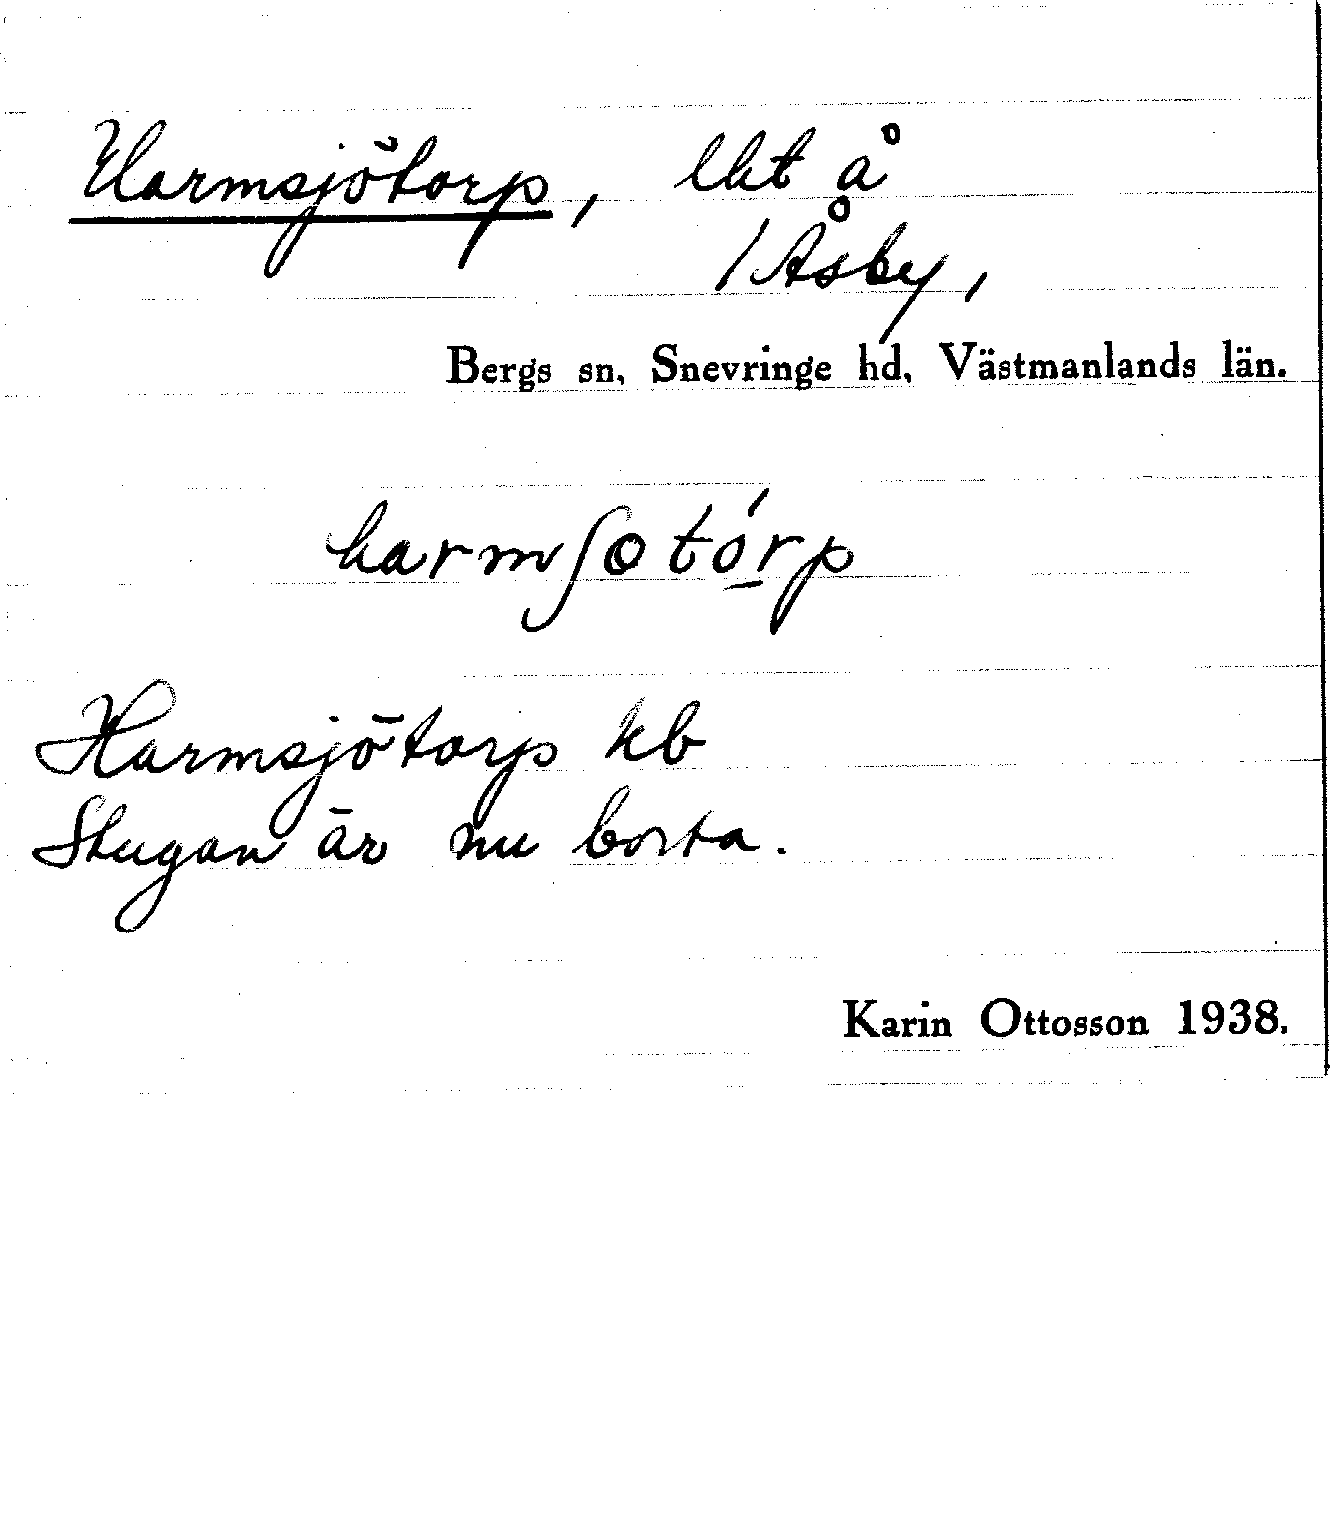 Harmsjötorp, lht å
1 Åsby,
Bergs sn, Snevringe hd, Västmanlands län.
harmʃotó̠rp
Harmsjötorp kb
Stugan är nu borta.
Karin Ottosson 1938.